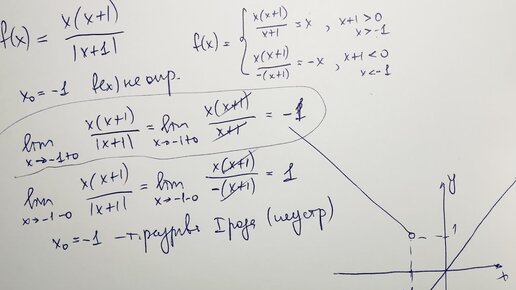 f(x) = x(x+1) / |x+1|
f(x) = { x(x+1) / x+1 = x , x+1 > 0
x > -1
x(x+1) / -(x+1) = -x , x+1 < 0
x < -1
x₀ = -1 f(x) не опр.
lim x→-1+0 x(x+1) / |x+1| = lim x→-1+0 x(x+1) / x+1 = -1
lim x→-1-0 x(x+1) / |x+1| = lim x→-1-0 x(x+1) / -(x+1) = 1
x₀ = -1 – т. разрыва I рода (неустр)
y
1
x